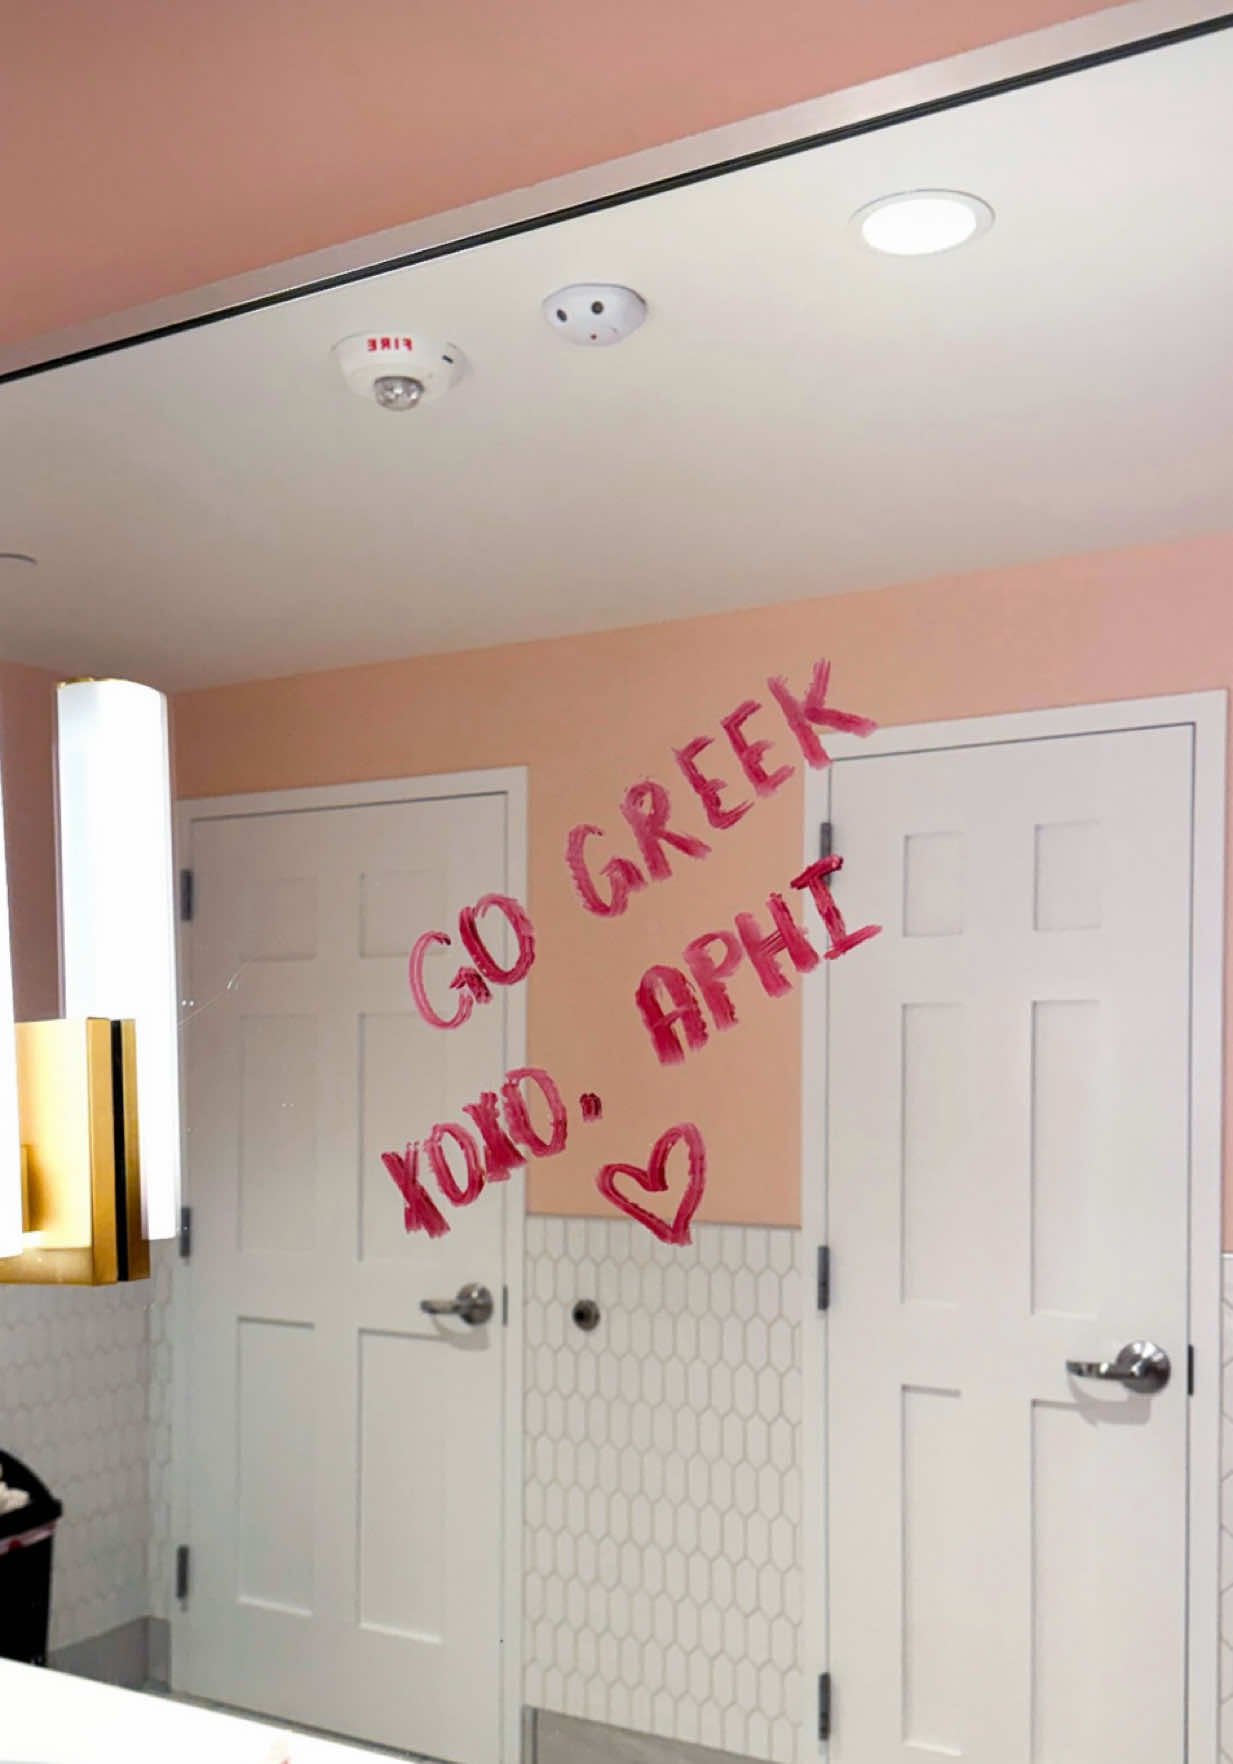 FIRE
GO GREEK
XOXO. APHI